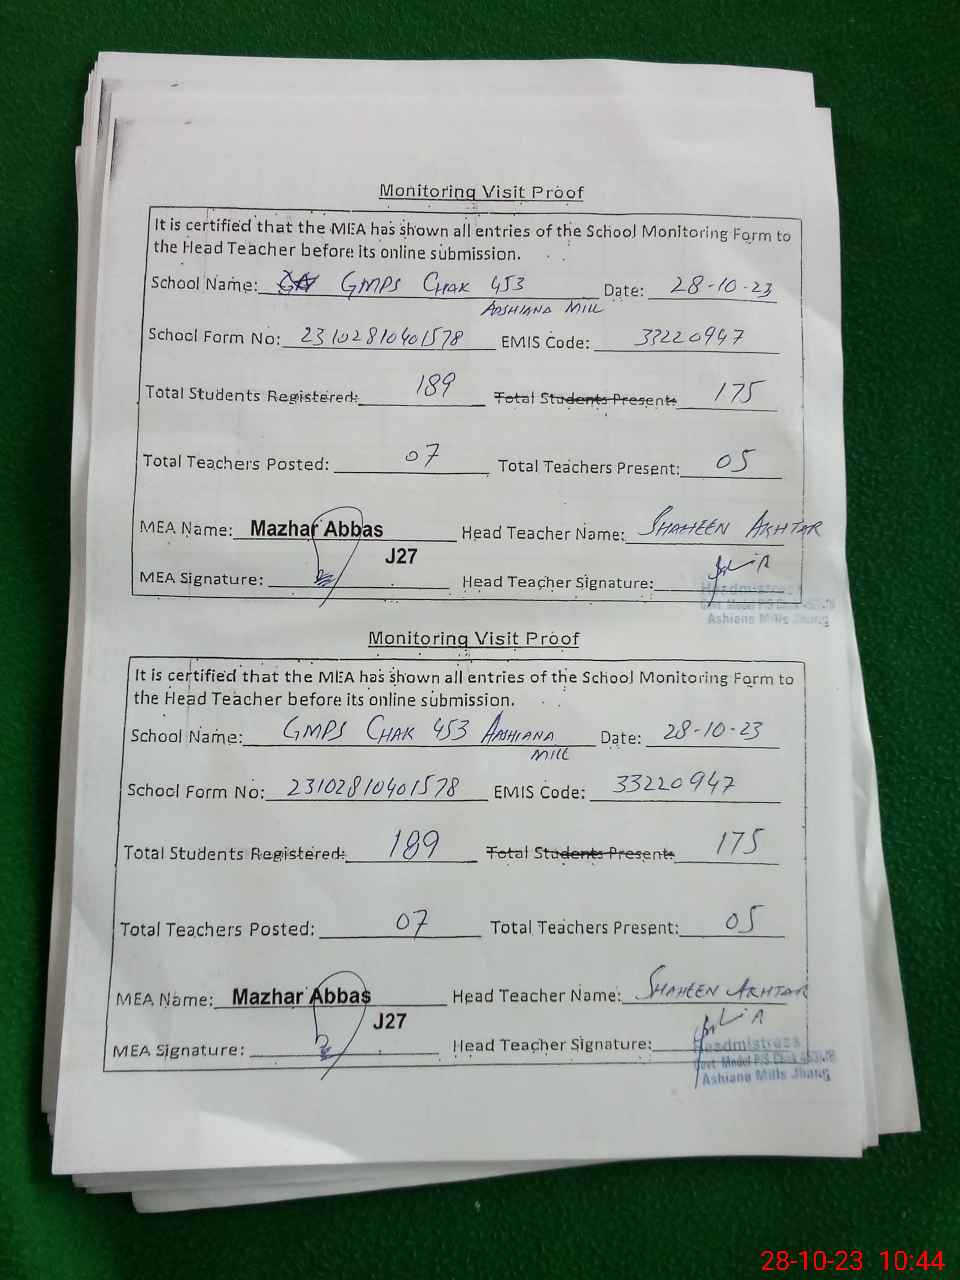 Monitoring Visit Proof
It is certified that the MEA has shown all entries of the School Monitoring Form to
the Head Teacher before its online submission.
School Name: GMPS CHAK 453 Date: 28-10-23
AASHIANA MILL
School Form No: 23102810401578 EMIS Code: 33220947
Total Students Registered: 189 Total Students Present: 175
Total Teachers Posted: 07 Total Teachers Present: 05
MEA Name: Mazhar Abbas Head Teacher Name: SHAHEEN AKHTAR
J27
MEA Signature: Head Teacher Signature:
Headmistress
Govt. Model P/S Chak 453/JB
Ashiana Mills Jhang
Monitoring Visit Proof
It is certified that the MEA has shown all entries of the School Monitoring Form to
the Head Teacher before its online submission.
School Name: GMPS CHAK 453 AASHIANA Date: 28-10-23
MILL
School Form No: 23102810401578 EMIS Code: 33220947
Total Students Registered: 189 Total Students Present: 175
Total Teachers Posted: 07 Total Teachers Present: 05
MEA Name: Mazhar Abbas Head Teacher Name: SHAHEEN AKHTAR
J27
MEA Signature: Head Teacher Signature:
Headmistress
Govt. Model P/S Chak 453/JB
Ashiana Mills Jhang
28-10-23 10:44